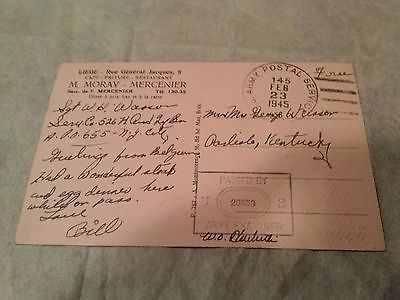 LIEGE - Rue Général Jacques, 8
CAFE - FRITURE - RESTAURANT
M. MORAY - MERCENIER
Succ. de F. MERCENIER
Tél. 130.35
Dîner à prix fixe et à la carte
Sgt W. H. Wasson
Serv. Co. 526th Armd Inf Bn
A.P.O. 655 - N.Y. City
Greetings from Belgium
Had a wonderful steak
and egg dinner here
while on pass.
Love
Bill
ARMY POSTAL SERVICE
145
FEB
23
1945
Free
Mr & Mrs George Wasson
Carlisle, Kentucky
PASSED BY
U 20553 S
ARMY EXAMINER